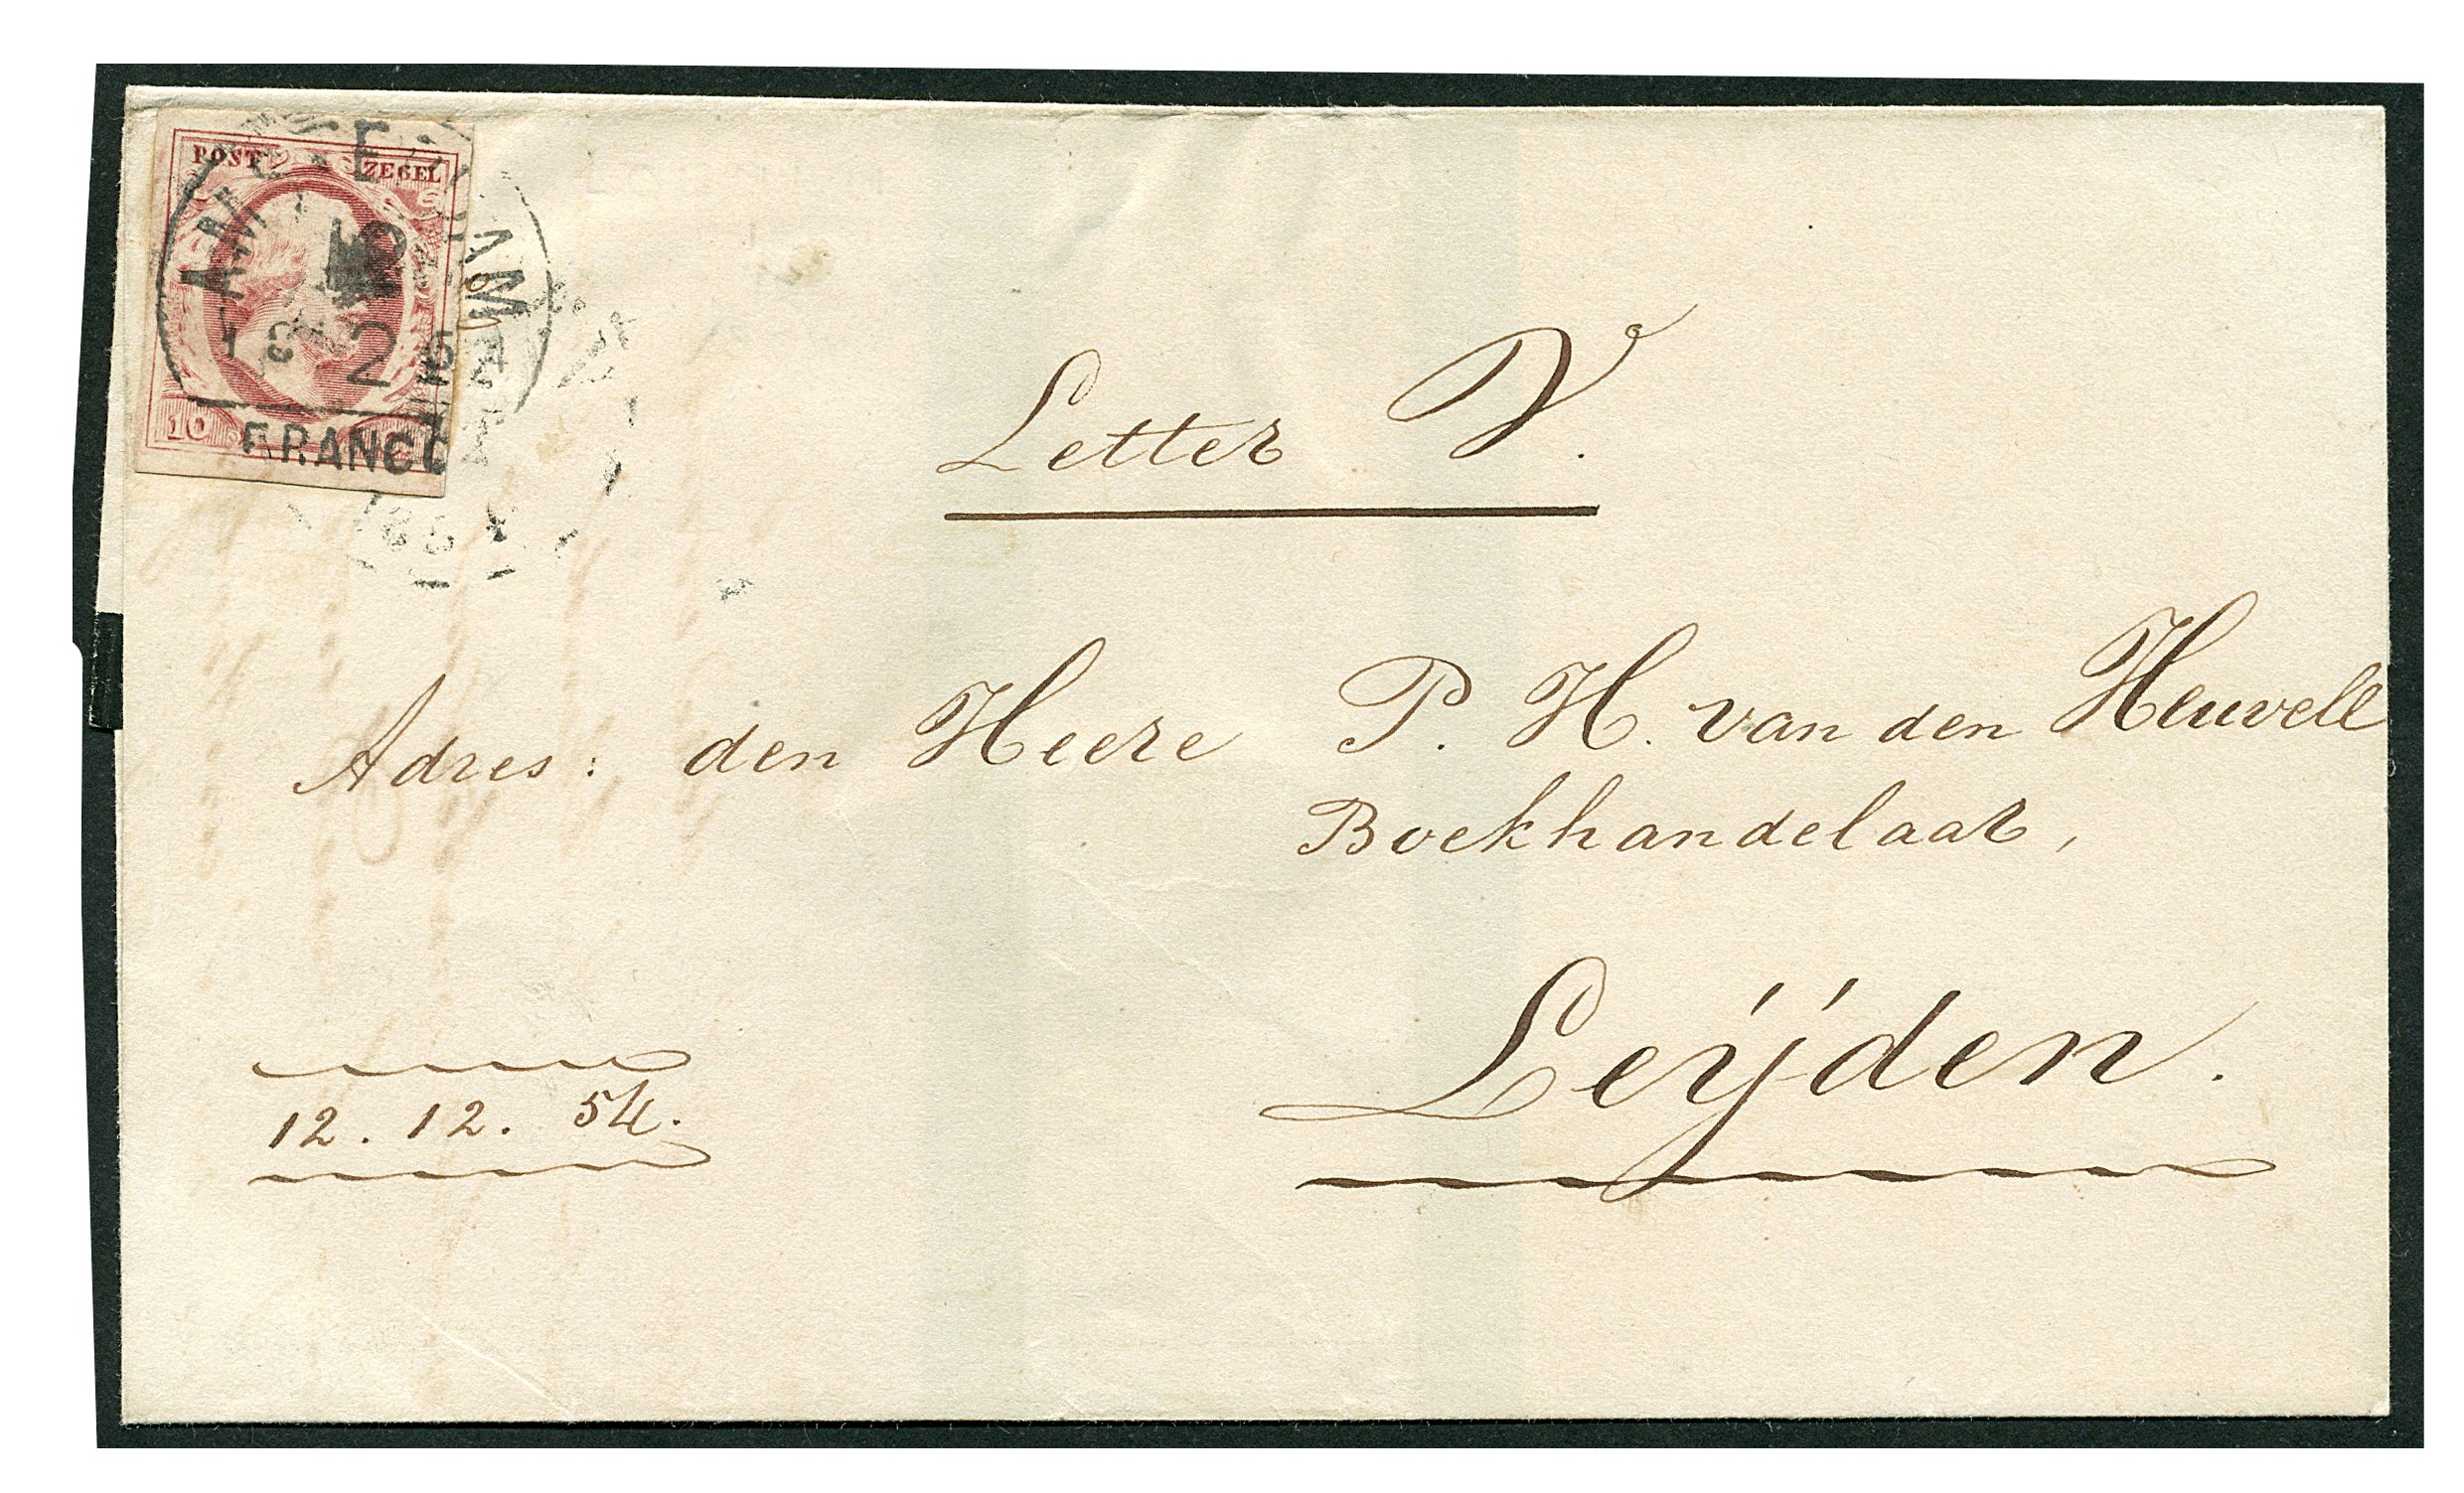 POST ZEGEL
10
FRANCO
Letter V.
Adres: den Heere P. H. van den Heuvell
Boekhandelaar,
Leÿden.
12. 12. 54.